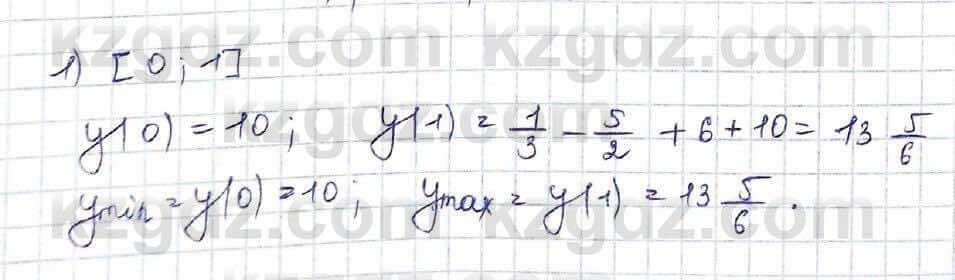 kzgdz.com kzgdz.com
1) [0; 1]
y(0) = 10; y(1) = 1/3 - 5/2 + 6 + 10 = 13 5/6
ymin = y(0) = 10; ymax = y(1) = 13 5/6.